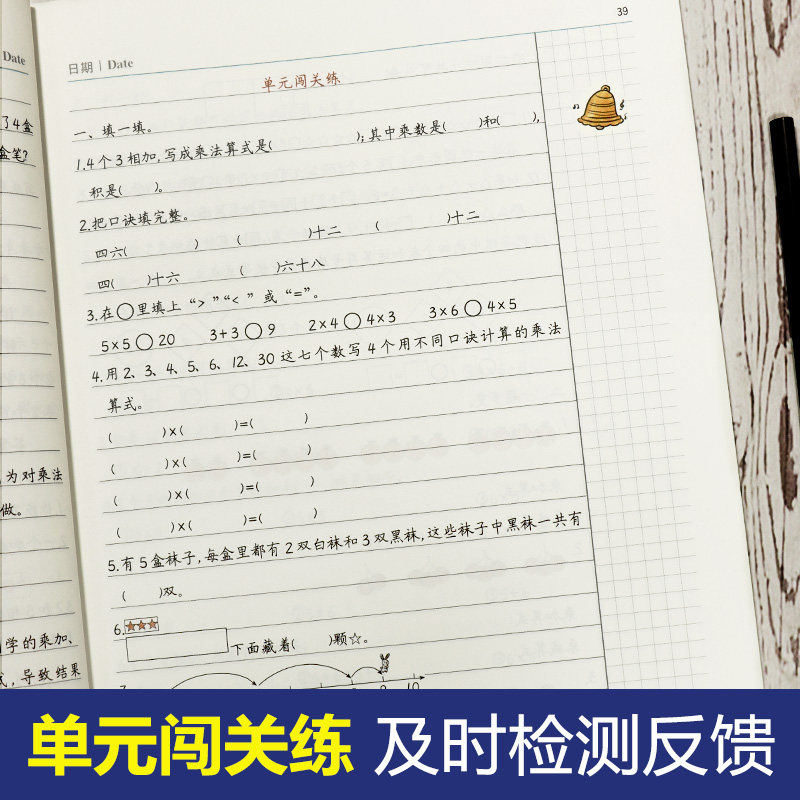 39
Date
日期 | Date
了4盒
盒笔?
单元闯关练
一、填一填。
1.4个3相加,写成乘法算式是( );其中乘数是( )和( ),
积是( )。
2.把口诀填完整。
四六( ) ( )十二 ( )十二
四( )十六 ( )六十八
3.在○里填上“>”“<”或“=”。
5×5○20 3+3○9 2×4○4×3 3×6○4×5
4.用2、3、4、5、6、12、30这七个数写4个用不同口诀计算的乘法
算式。
( )×( )=( )
( )×( )=( )
( )×( )=( )
( )×( )=( )
为对乘法
做。
5.有5盒袜子,每盒里都有2双白袜和3双黑袜,这些袜子中黑袜一共有
( )双。
6.★★★
下面藏着( )颗☆。
学的乘加、
式,导致结果
9 10
单元闯关练 及时检测反馈